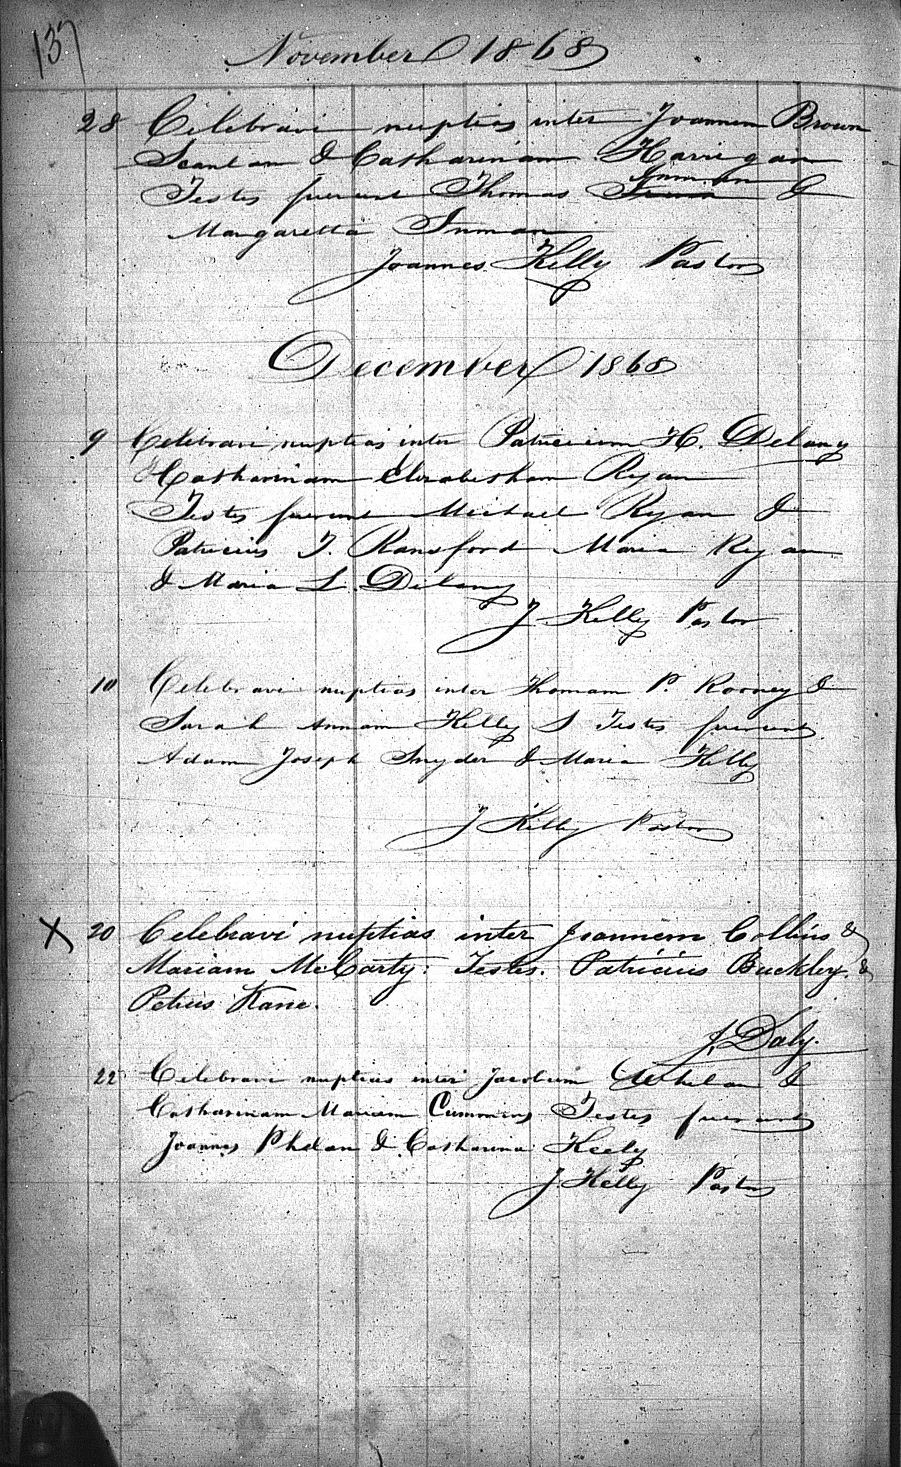 137
November 1868
28 Celebravi nuptias inter Joannem Brown
Scanlan & Catharinam Harrigan
Inman
Testes fuerunt Thomas &
Margaretta Inman
Joannes Kelly Pastor
December 1868
9 Celebravi nuptias inter Patricium H. Delany
& Catharinam Elizabetham Ryan
Testes fuerunt Michael Ryan &
Patricius T. Ransford Maria Ryan
& Maria L. Delany
J. Kelly Pastor
10 Celebravi nuptias inter Thomam P. Rooney &
Sarah Annam Kelly Testes fuerunt
Adam Joseph Snyder & Maria Kelly
J Kelly Pastor
X 20 Celebravi nuptias inter Joannem Collins &
Mariam McCarty: Testes. Patricius Buckley &
Petrus Kane.
J. Daly.
22 Celebravi nuptias inter Jacobum Whelan &
Catharinam Mariam Cummins Testes fuerunt
Joannes Phelan & Catharina Keely
J Kelly Pastor